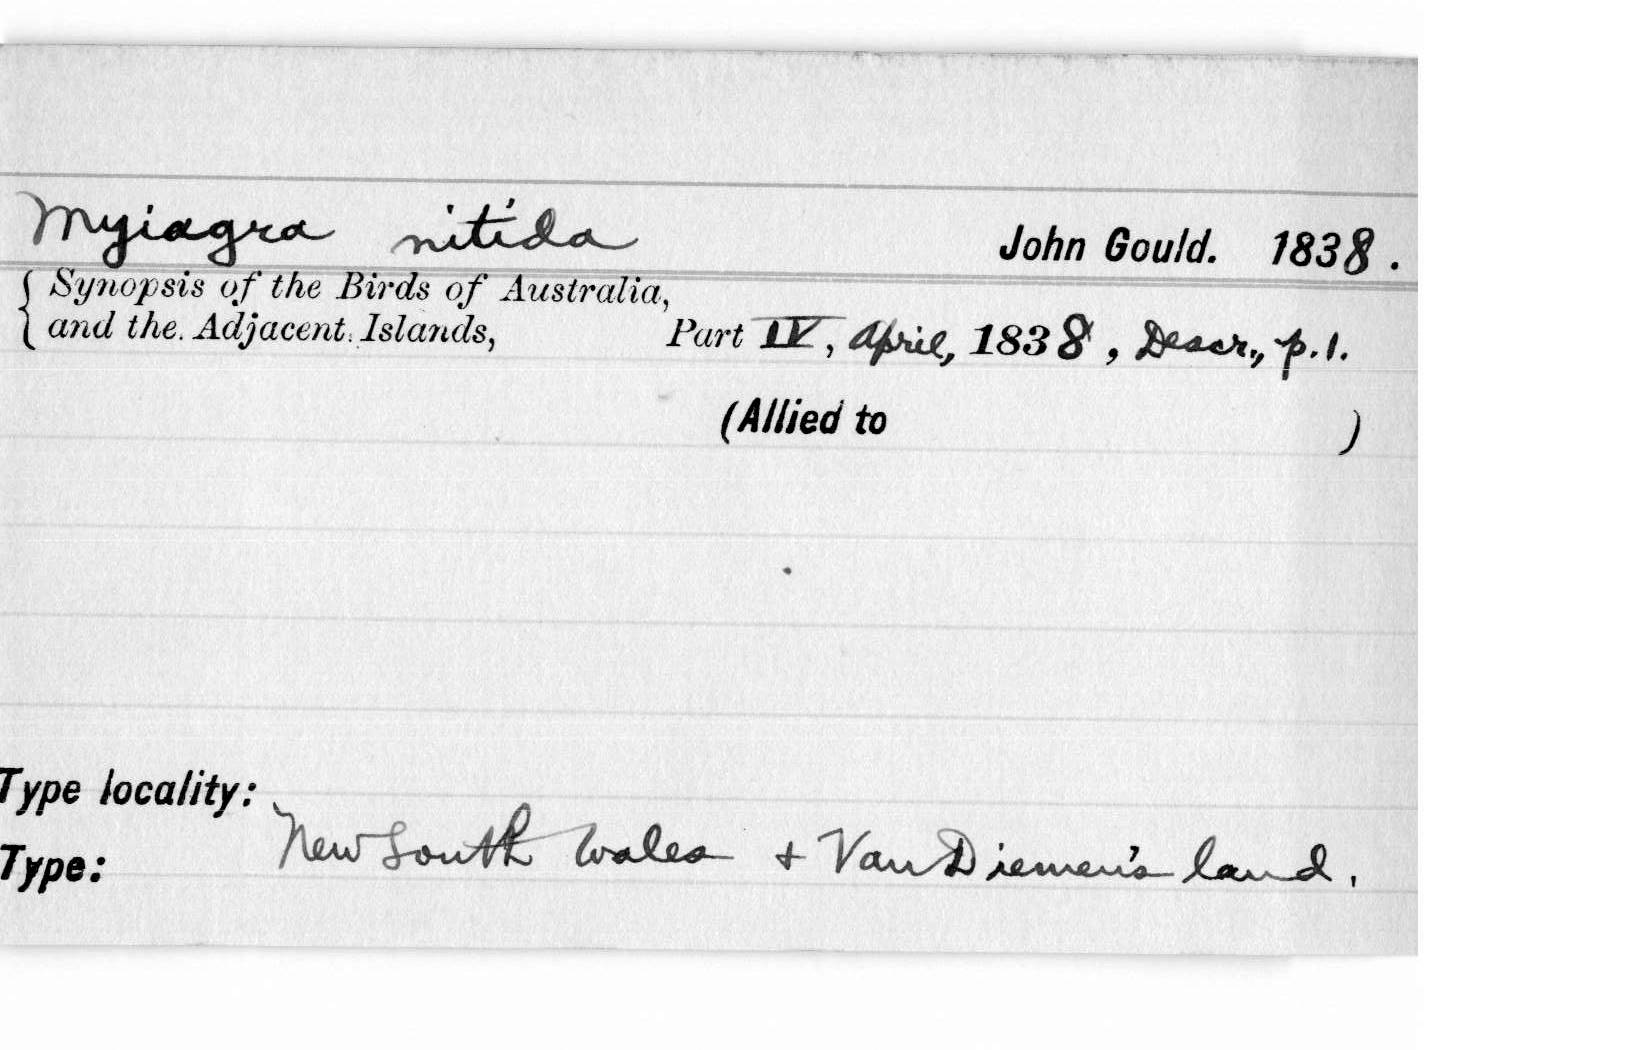 Myiagra nitida John Gould. 1838.
Synopsis of the Birds of Australia,
and the Adjacent Islands, Part IV, April, 1838, Descr., p.1.
(Allied to )
Type locality:
New South Wales + Van Diemen's land.
Type: